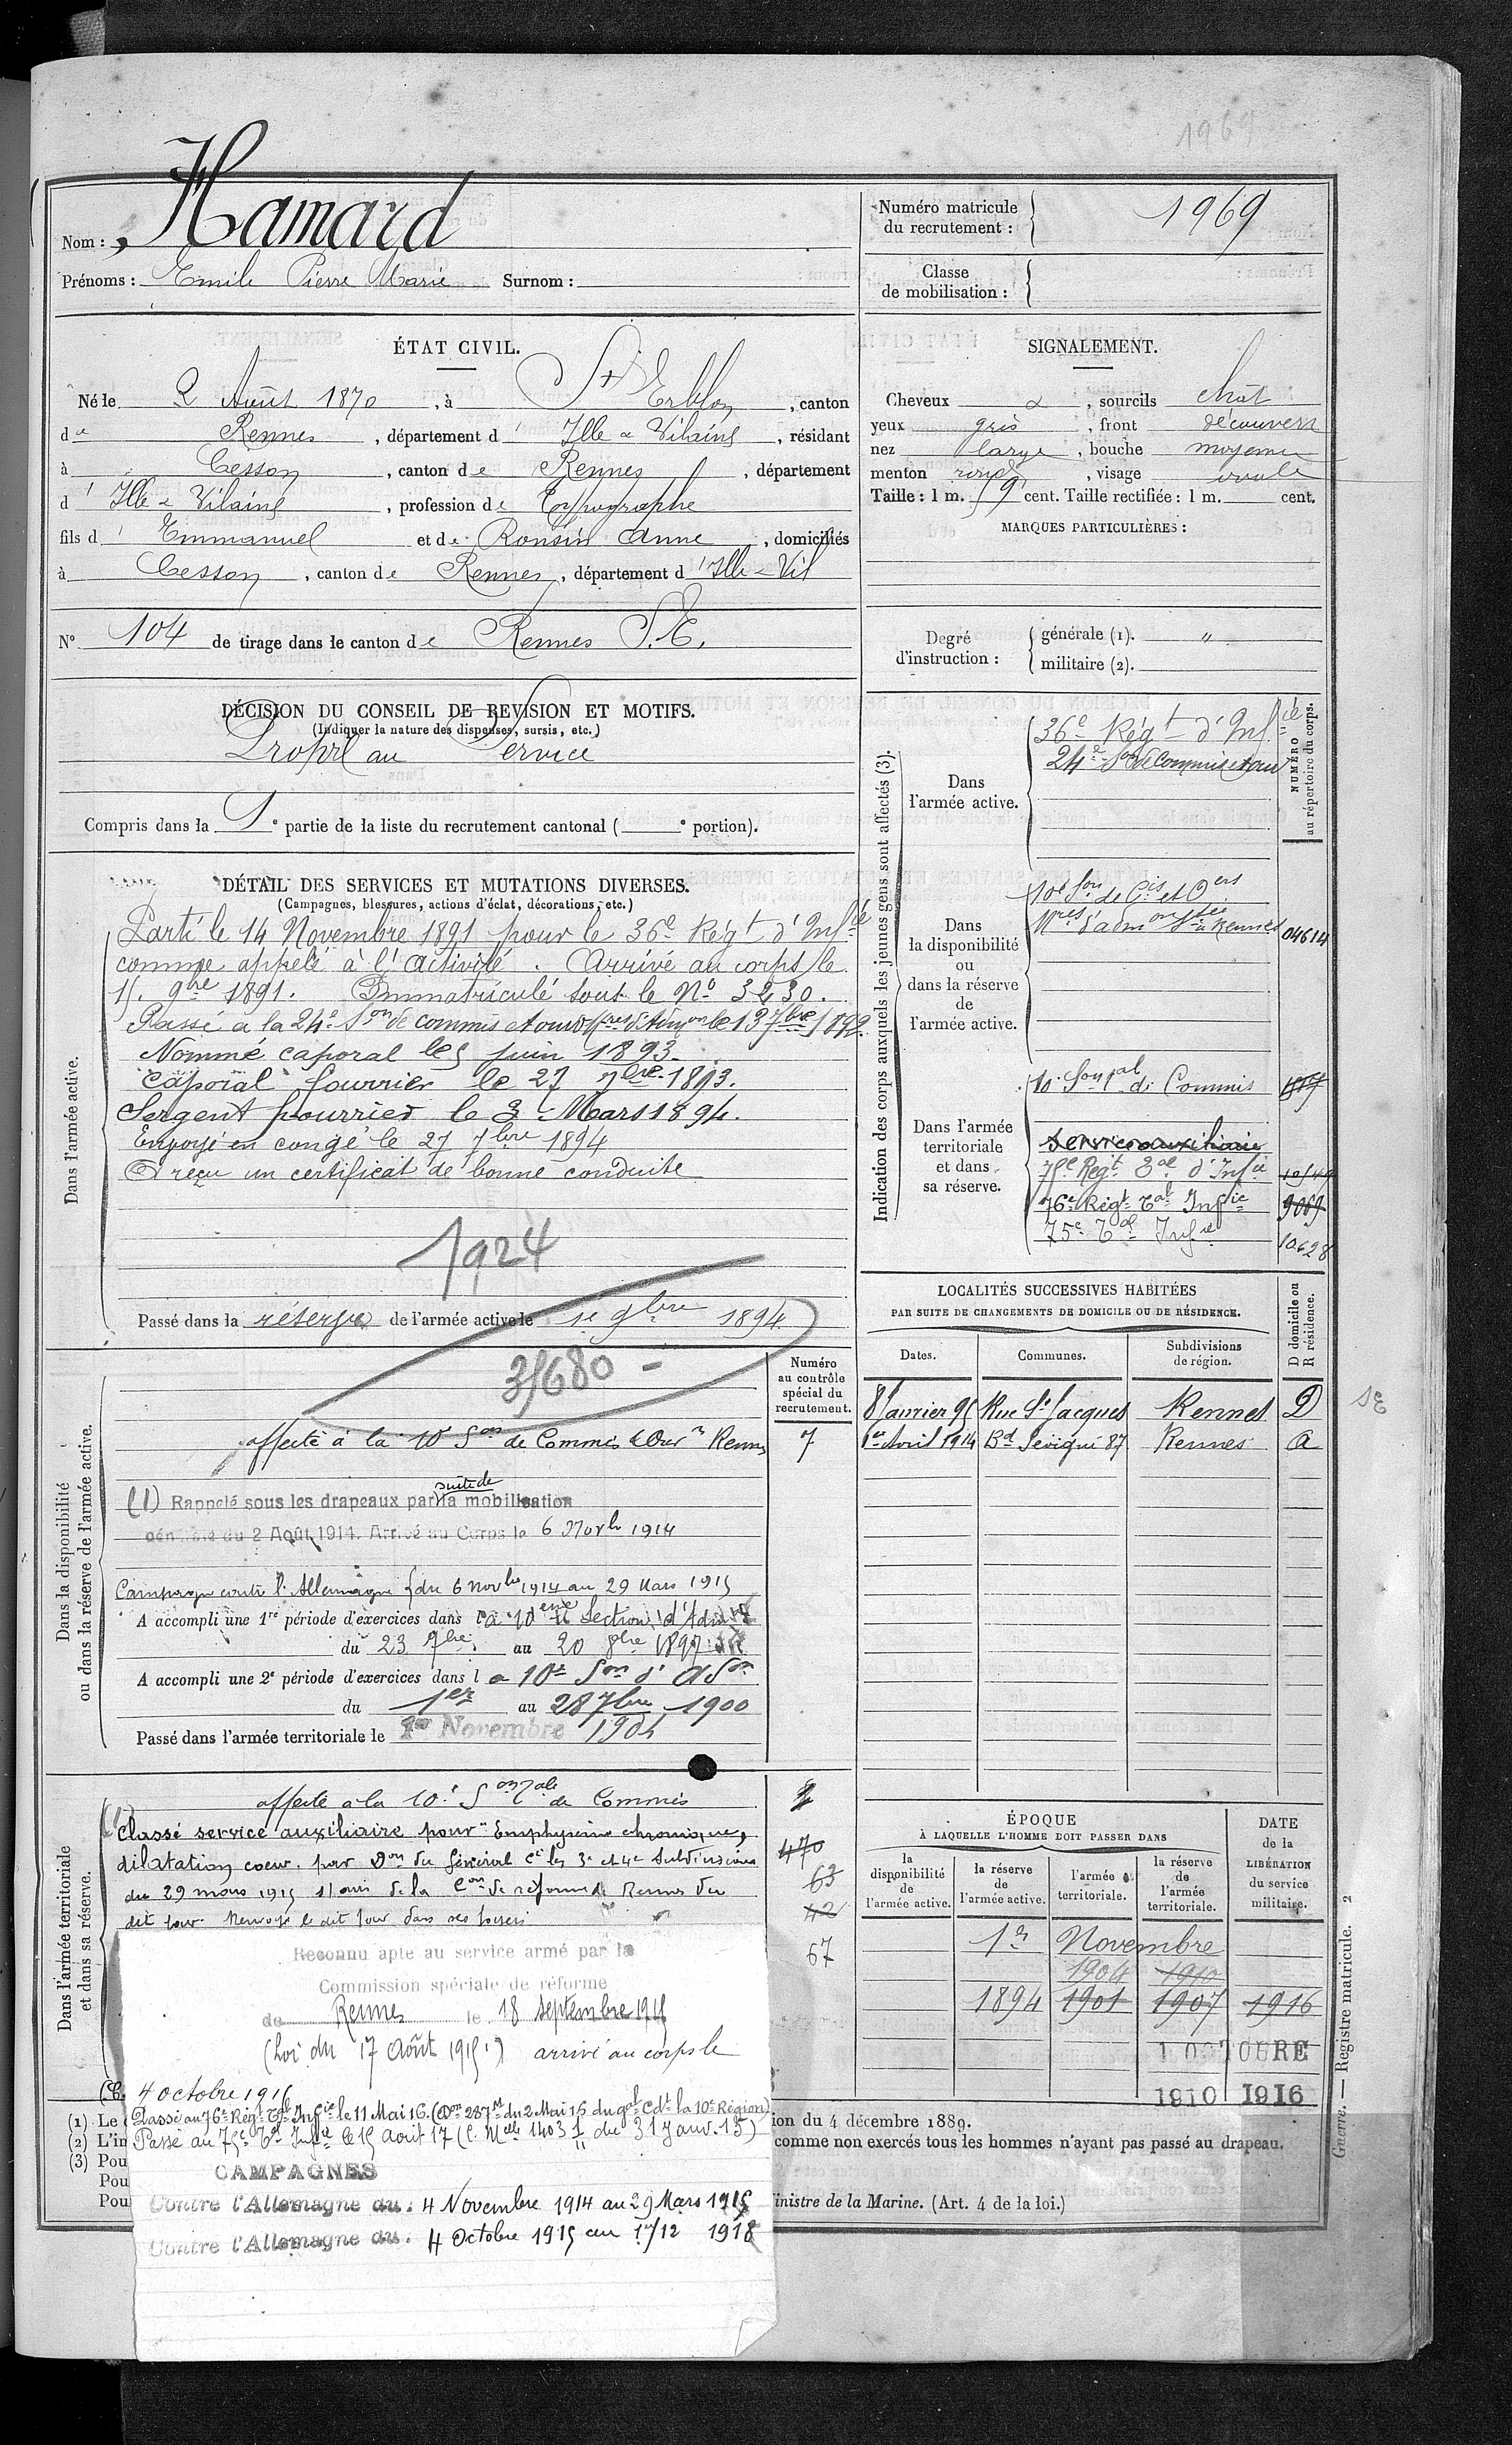 1969
Nom : Hamard
Prénoms : Emile Pierre Marie Surnom :
Numéro matricule du recrutement : 1969
Classe de mobilisation :
ÉTAT CIVIL.
Né le 2 Août 1870, à St Erblon, canton
de Rennes, département d'Ille & Vilaine, résidant
à Cesson, canton de Rennes, département
d'Ille & Vilaine, profession de Typographe
fils d'Emmanuel et de Ronsin Anne, domiciliés
à Cesson, canton de Rennes, département d'Ille & Vil
N° 104 de tirage dans le canton de Rennes S.E.
SIGNALEMENT.
Cheveux &, sourcils chât
yeux gris, front découvert
nez large, bouche moyenne
menton rond, visage ovale
Taille : 1 m. 59 cent. Taille rectifiée : 1 m. cent.
MARQUES PARTICULIÈRES :
Degré d'instruction : générale (1). "
militaire (2).
DÉCISION DU CONSEIL DE REVISION ET MOTIFS.
(Indiquer la nature des dispenses, sursis, etc.)
Propre au Service
Compris dans la 1e partie de la liste du recrutement cantonal ( e portion).
DÉTAIL DES SERVICES ET MUTATIONS DIVERSES.
(Campagnes, blessures, actions d'éclat, décorations, etc.)
Dans l'armée active.
Parti le 14 Novembre 1891 pour le 36e Régt d'Infie
comme appelé à l'activité. Arrivé au corps le
15 9bre 1891. Immatriculé sous le N° 3230.
Passé à la 24e Son de commis et ouvriers d'Admon le 13 7bre 1892
Nommé caporal le 5 juin 1893.
Caporal fourrier le 27 7bre 1893.
Sergent fourrier le 3 Mars 1894.
Envoyé en congé le 27 7bre 1894
A reçu un certificat de bonne conduite
1924
Passé dans la réserve de l'armée active le 1e 9bre 1894
35680 -
Indication des corps auxquels les jeunes gens sont affectés (3).
NUMÉRO au répertoire du corps.
Dans l'armée active.
36e Régt d'Infie
24e Son de Commis et ouv
Dans la disponibilité ou dans la réserve de l'armée active.
10e Son de Cis et Oers
Mres d'admon à Rennes 04614
Dans l'armée territoriale et dans sa réserve.
10e Son Tal de Commis
Service auxiliaire
75e Régt Tal d'Infie
76e Régt Tal Infie 9069
75e Tal Infie 10628
LOCALITÉS SUCCESSIVES HABITÉES
PAR SUITE DE CHANGEMENTS DE DOMICILE OU DE RÉSIDENCE.
Dates. Communes. Subdivisions de région. D domicile ou R résidence.
8 Janvier 95 Rue St Jacques Rennes D
1er Avril 1914 Bd Sévigné 87 Rennes
SE
Dans la disponibilité ou dans la réserve de l'armée active.
Numéro au contrôle spécial du recrutement.
affecté à la 10e Son de Commis & Ouvrs Rennes 7
(1) Rappelé sous les drapeaux par suite de la mobilisation
générale du 2 Août 1914. Arrivé au Corps le 6 Novbre 1914
Campagne contre l'Allemagne du 6 novbre 1914 au 29 Mars 1915
A accompli une 1re période d'exercices dans la 10eme Section d'Admon
du 23 7bre au 20 8bre 1897
A accompli une 2e période d'exercices dans la 10e Son d'
du 1er au 28 7bre 1900
Passé dans l'armée territoriale le 1er Novembre 1904
Dans l'armée territoriale et dans sa réserve.
affecté à la 10e Son Tale de Commis 2
Classé service auxiliaire pour "Emphysème chronique, 470
dilatation coeur. par Don du Général Ct les 3e et 4e Subdivisions 63
du 29 mars 1915 avis de la Con de réforme de Rennes du 42
dit jour. Renvoyé le dit jour dans ses foyers 67
Reconnu apte au service armé par la
Commission spéciale de réforme
de Rennes le 18 septembre 1915
(Loi du 17 Août 1915) arrivé au corps le
4 octobre 1915
Passé au 76e Régt Tal Infie le 11 Mai 16. (Don 287 du 2 Mai 16 du gal Cdt la 10e Région)
Passé au 75e Tal Infie le 15 août 17 (C. Mlle 1403 du 31 janv. 15)
CAMPAGNES
Contre l'Allemagne du : 4 Novembre 1914 au 29 Mars 1915
Contre l'Allemagne du : 4 Octobre 1915 au 17/12 1918
ÉPOQUE
À LAQUELLE L'HOMME DOIT PASSER DANS
la disponibilité de l'armée active. la réserve de l'armée active. l'armée territoriale. la réserve de l'armée territoriale.
DATE de la LIBÉRATION du service militaire.
1er Novembre
1904 1910
1894 1901 1907 1916
1 OCTOBRE
1910 1916
(1) Le
ion du 4 décembre 1889.
(2) L'in
comme non exercés tous les hommes n'ayant pas passé au drapeau.
(3) Pou
Pou
Pou
inistre de la Marine. (Art. 4 de la loi.)
Guerre. — Registre matricule. 2